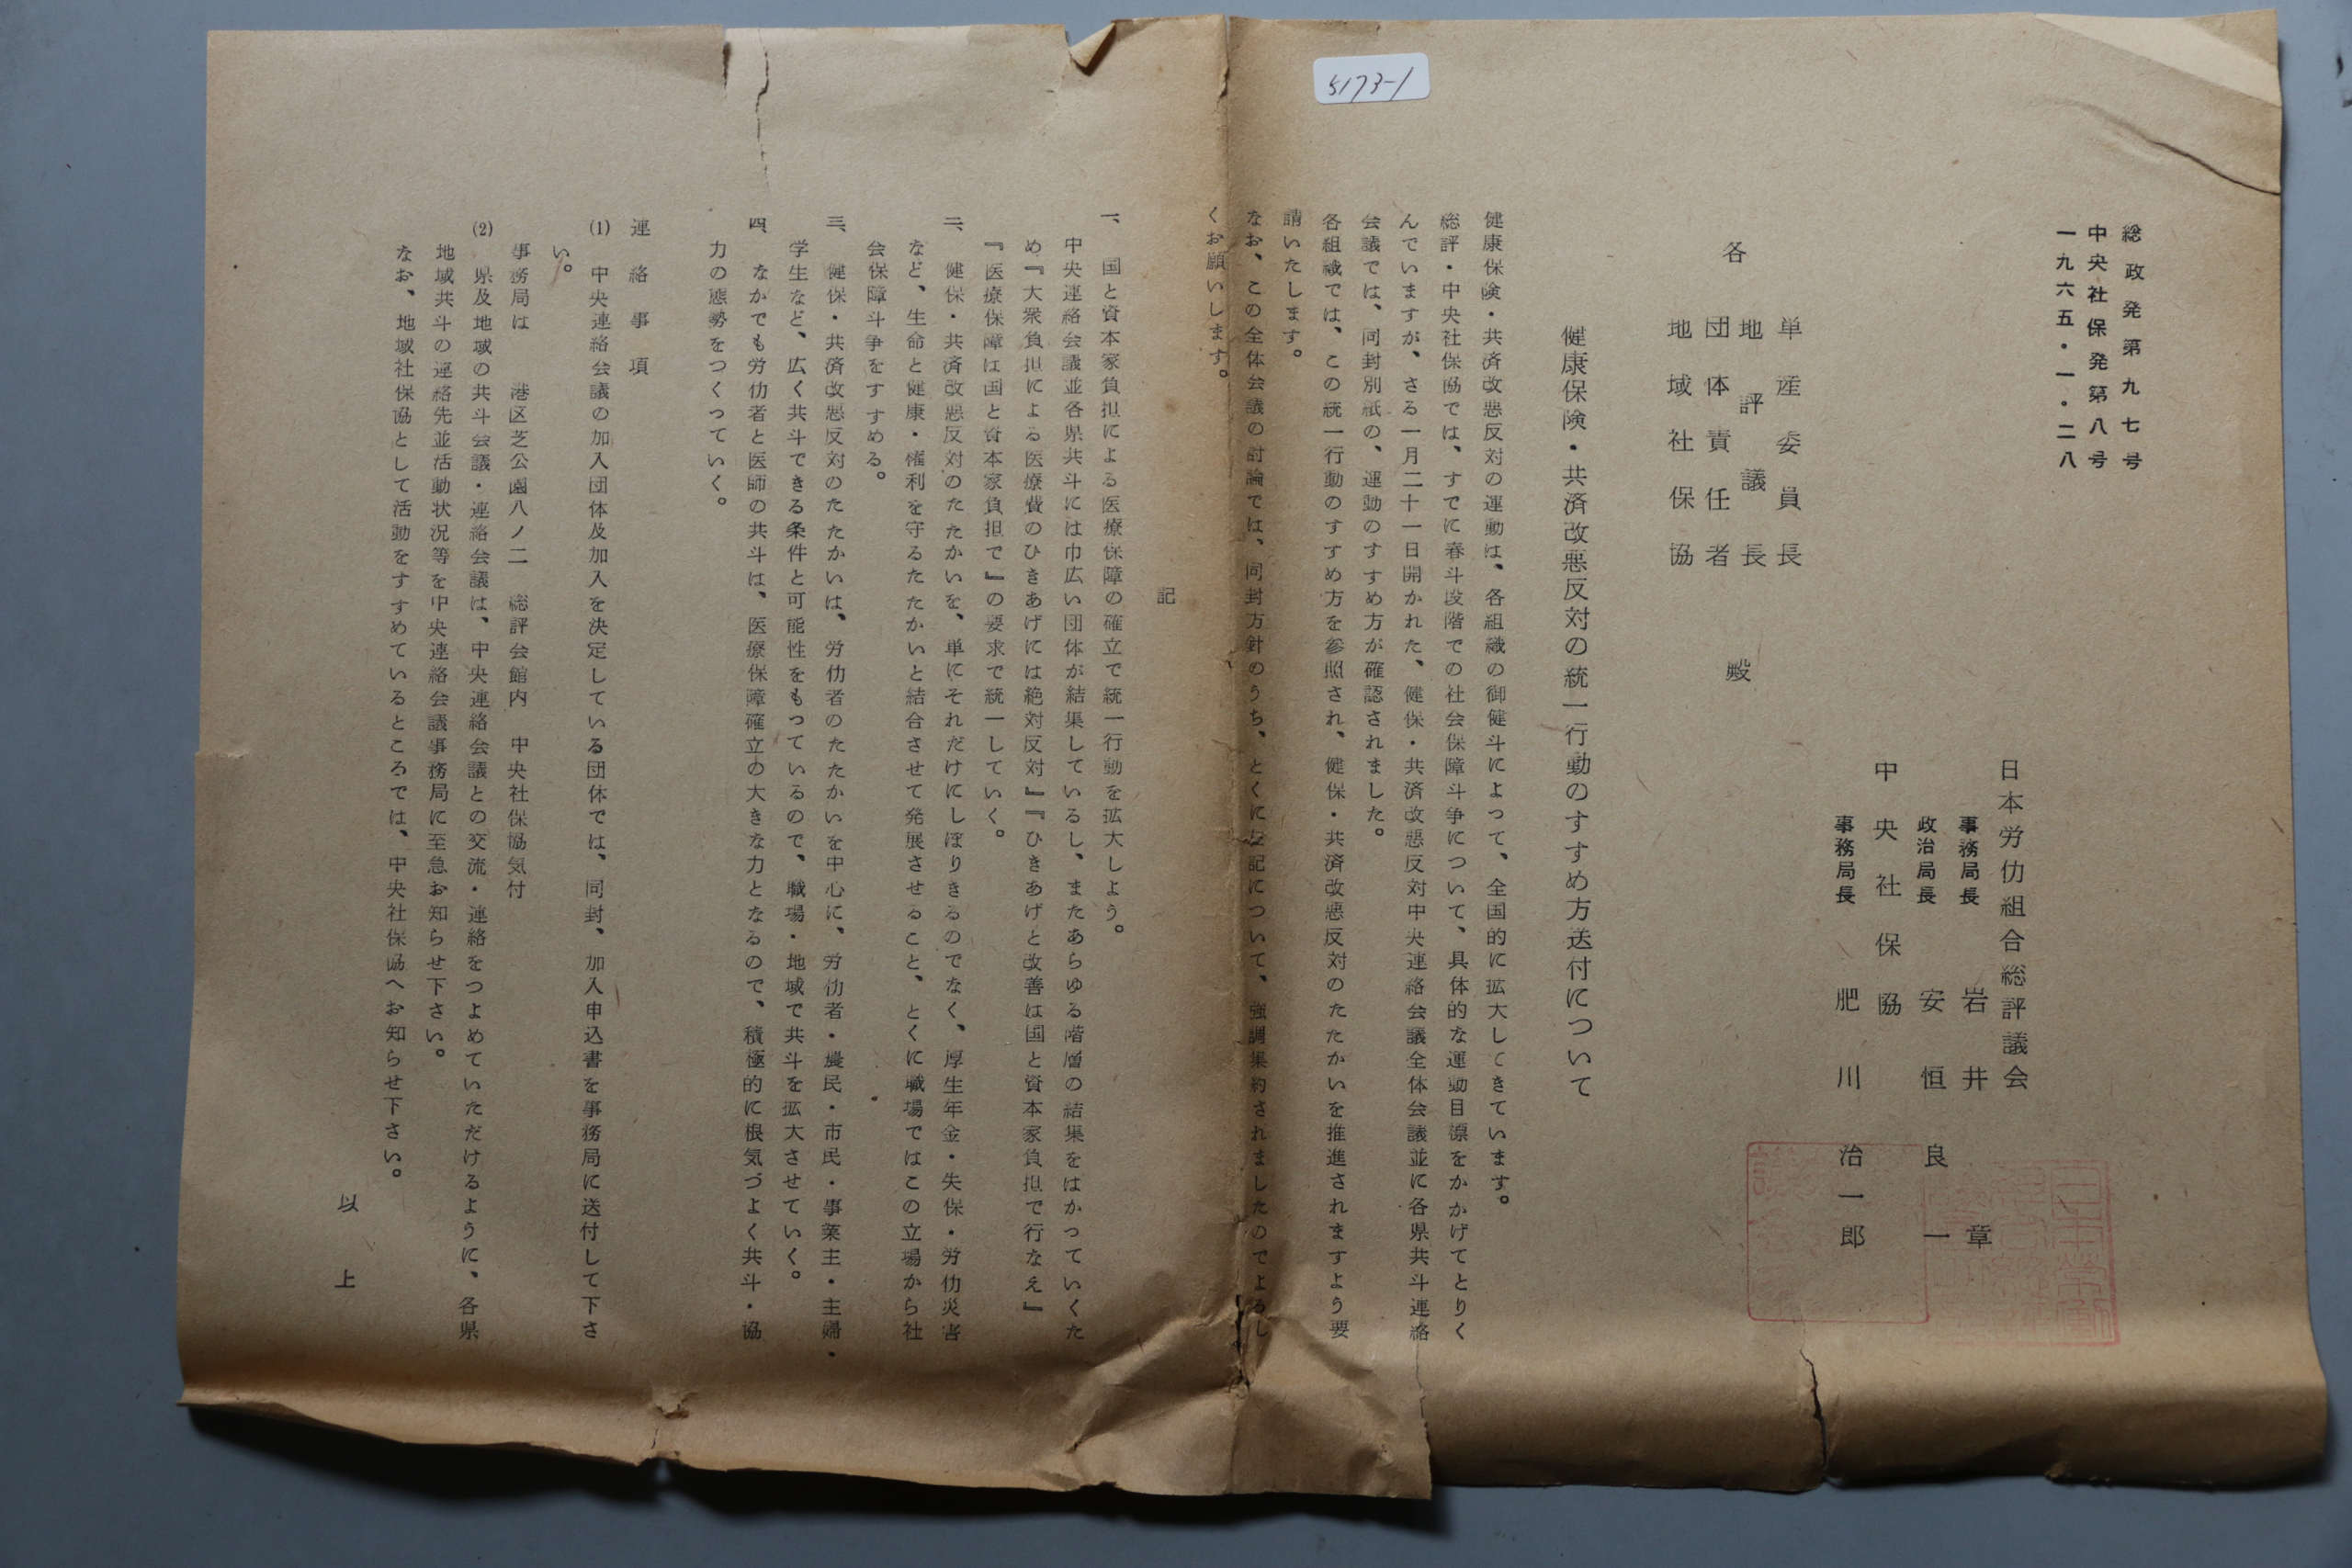 5173-1
総政発第九七号
中央社保発第八号
一九六五・一・二八
日本労仂組合総評議会
事務局長 岩井 章
政治局長 安恒良一
中央社保協
事務局長 肥川治一郎
各
単産委員長
地評議長
団体責任者
地域社保協
殿
健康保険・共済改悪反対の統一行動のすすめ方送付について
健康保険・共済改悪反対の運動は、各組織の御健斗によつて、全国的に拡大してきています。
総評・中央社保協では、すでに春斗段階での社会保障斗争について、具体的な運動目標をかかげてとりく
んでいますが、さる一月二十一日開かれた、健保・共済改悪反対中央連絡会議全体会議並に各県共斗連絡
会議では、同封別紙の、運動のすすめ方が確認されました。
各組織では、この統一行動のすすめ方を参照され、健保・共済改悪反対のたたかいを推進されますよう要
請いたします。
なお、この全体会議の討論では、同封方針のうち、とくに左記について、強調集約されましたのでよろし
くお願いします。
記
一、国と資本家負担による医療保障の確立で統一行動を拡大しよう。
中央連絡会議並各県共斗には巾広い団体が結集しているし、またあらゆる階層の結集をはかつていくた
め『大衆負担による医療費のひきあげには絶対反対』『ひきあげと改善は国と資本家負担で行なえ』
『医療保障は国と資本家負担で』の要求で統一していく。
二、健保・共済改悪反対のたたかいを、単にそれだけにしぼりきるのでなく、厚生年金・失保・労仂災害
など、生命と健康・権利を守るたたかいと結合させて発展させること、とくに職場ではこの立場から社
会保障斗争をすすめる。
三、健保・共済改悪反対のたたかいは、労仂者のたたかいを中心に、労仂者・農民・市民・事業主・主婦・
学生など、広く共斗できる条件と可能性をもつているので、職場・地域で共斗を拡大させていく。
四、なかでも労仂者と医師の共斗は、医療保障確立の大きな力となるので、積極的に根気づよく共斗・協
力の態勢をつくつていく。
連絡事項
(1) 中央連絡会議の加入団体及加入を決定している団体では、同封、加入申込書を事務局に送付して下さ
い。
事務局は 港区芝公園八ノ二 総評会館内 中央社保協気付
(2) 県及地域の共斗会議・連絡会議は、中央連絡会議との交流・連絡をつよめていただけるように、各県
地域共斗の連絡先並活動状況等を中央連絡会議事務局に至急お知らせ下さい。
なお、地域社保協として活動をすすめているところでは、中央社保協へお知らせ下さい。
以上